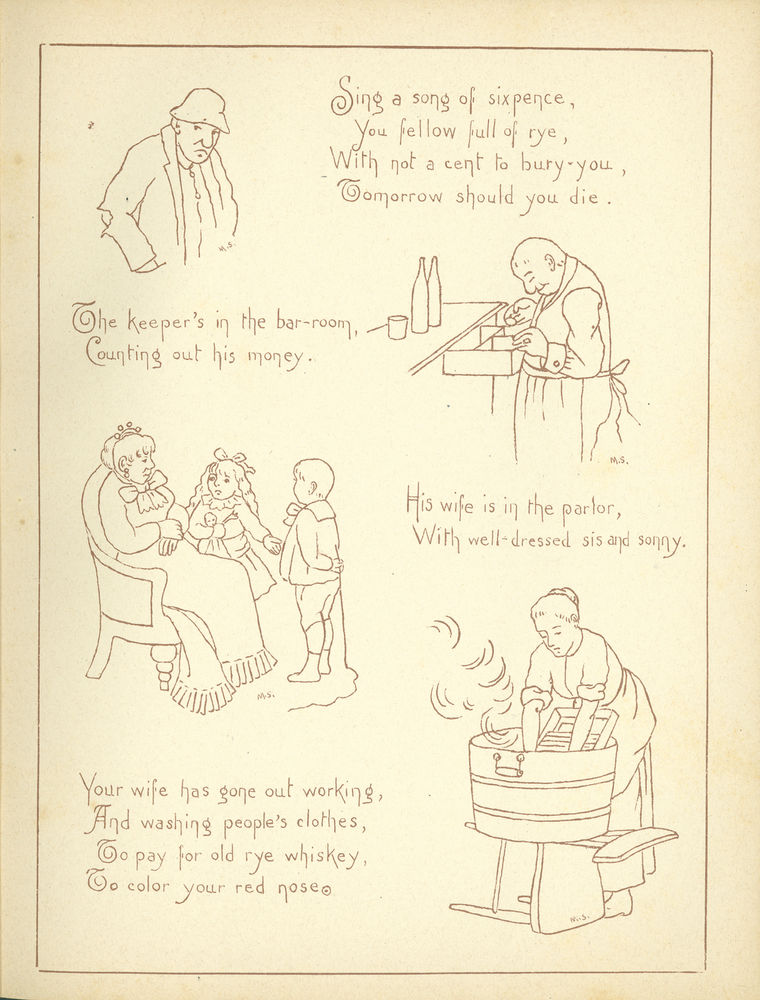 Sing a song of sixpence,
You fellow full of rye,
With not a cent to bury-you,
Tomorrow should you die.
M.S.
The keeper's in the bar-room,
Counting out his money.
M.S.
His wife is in the parlor,
With well-dressed sis and sonny.
M.S.
Your wife has gone out working,
And washing people's clothes,
To pay for old rye whiskey,
To color your red nose.
M.S.